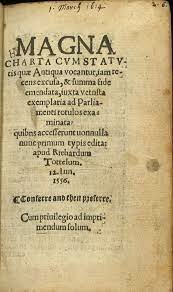 1. March 1614
MAGNA
CHARTA CVM STATV-
tis quæ Antiqua vocantur, iam re-
cens excusa, & summa fide
emendata, iuxta vetusta
exemplaria ad Parlia-
menti rotulos exa-
minata:
quibus accesserunt nonnulla
nunc primum typis edita:
apud Richardum
Tottelum.
12. Iun.
1556.
Conferre and then preferre.
Cum priuilegio ad impri-
mendum solum.